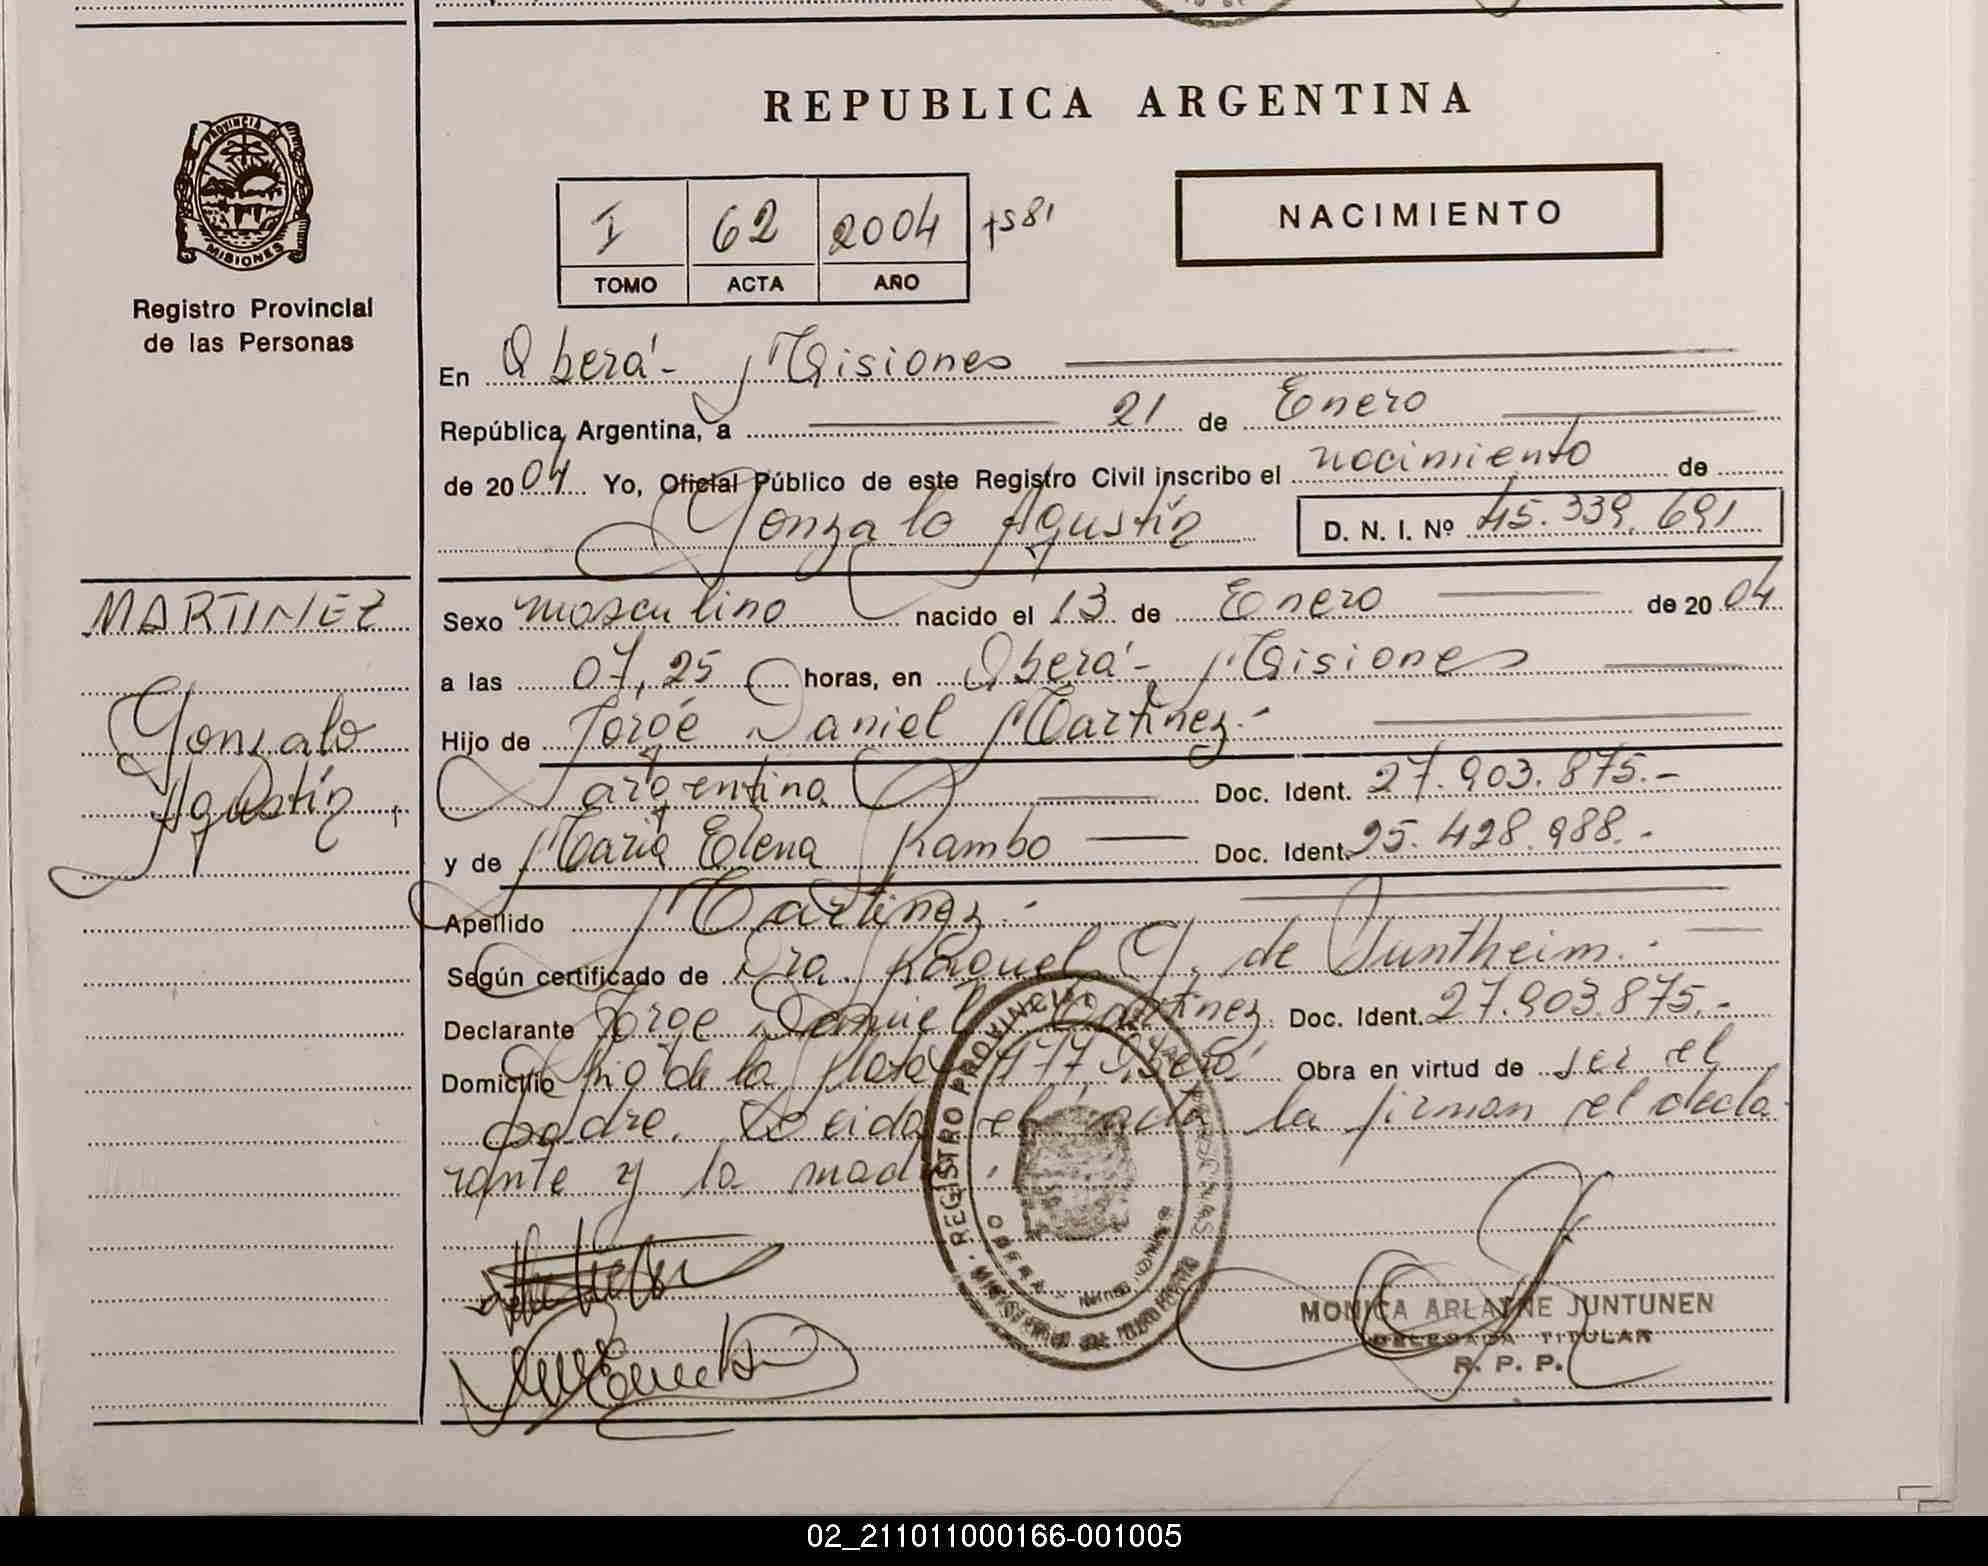 REPUBLICA ARGENTINA
PROVINCIA DE
MISIONES
Registro Provincial
de las Personas
I 62 2004
TOMO ACTA AÑO
NACIMIENTO
En Oberá - Misiones
República Argentina, a 21 de Enero
de 2004 Yo, Oficial Público de este Registro Civil inscribo el nacimiento de
Gonzalo Agustín D. N. I. Nº 45.339.691
MARTINEZ
Gonzalo
Agustín
Sexo masculino nacido el 13 de Enero de 2004
a las 07,25 horas, en Oberá - Misiones
Hijo de Jorge Daniel Martinez.-
argentina Doc. Ident. 27.903.875.-
y de María Elena Rambo Doc. Ident. 25.428.988.-
Apellido Martinez.-
Según certificado de Dra. Raquel G. de Juntheim.-
Declarante Jorge Daniel Martinez Doc. Ident. 27.903.875.-
Domicilio Río de la Plata Oberá Obra en virtud de ser el
padre. Leida el acta la firman el decla
rante y la madre.
REGISTRO PROVINCIAL
OBERA
MONICA ARLAINE JUNTUNEN
DELEGADA TITULAR
R. P. P.
02_211011000166-001005